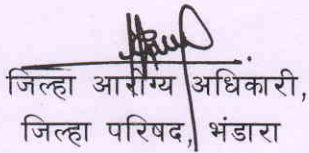 जिल्हा आरोग्य अधिकारी,
जिल्हा परिषद, भंडारा